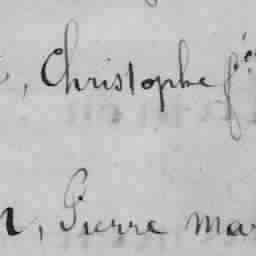 , Christophe
, Pierre mar